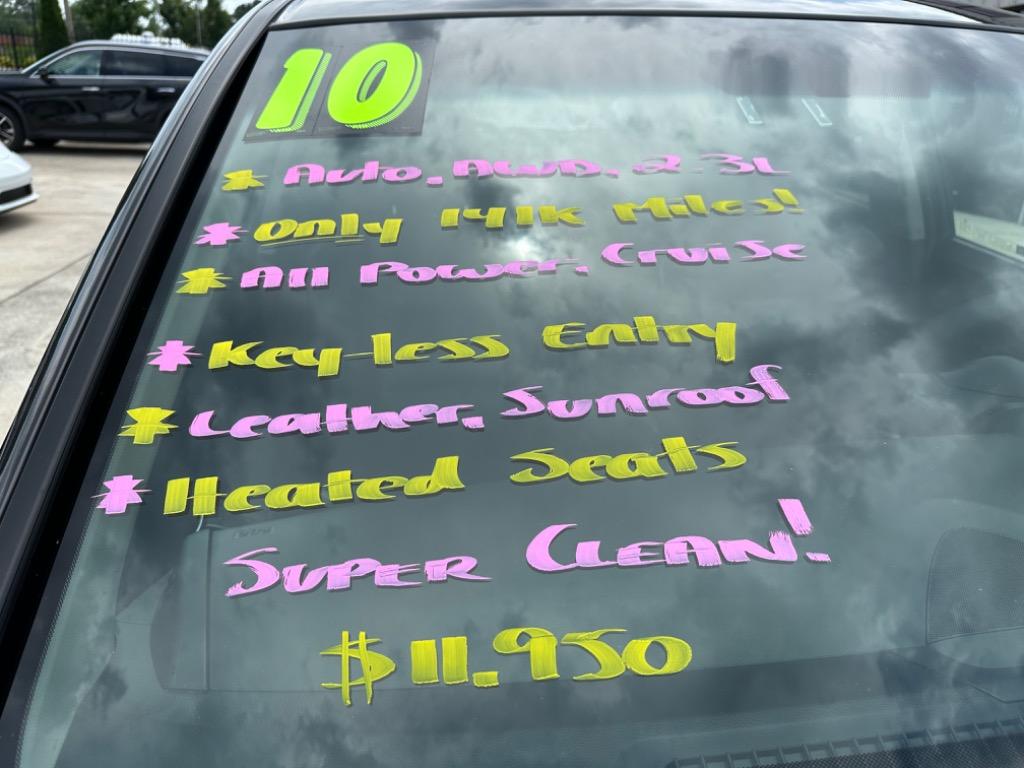 10
* Auto, AWD, 2.3L
* Only 141K Miles!
* All Power, Cruise
* Key-less Entry
* Leather, Sunroof
* Heated Seats
SUPER CLEAN!
$11,950